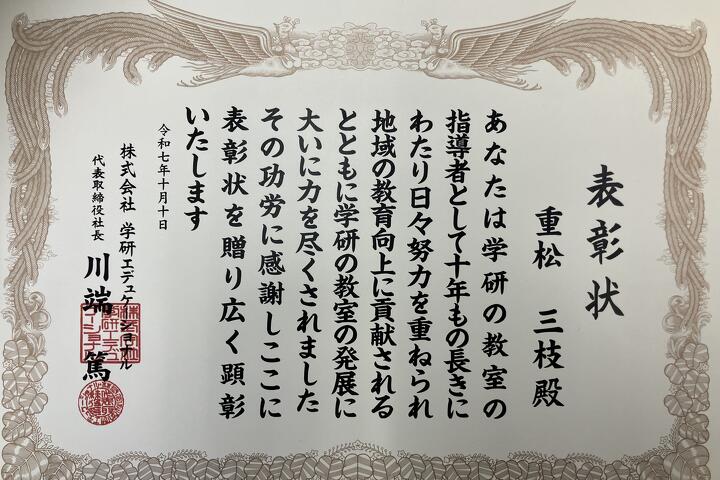 表彰状
重松 三枝殿
あなたは学研の教室の
指導者として十年もの長きに
わたり日々努力を重ねられ
地域の教育向上に貢献される
とともに学研の教室の発展に
大いに力を尽くされました
その功労に感謝しここに
表彰状を贈り広く顕彰
いたします
令和七年十月十日
株式会社 学研エデュケーショナル
代表取締役社長 川端 篤